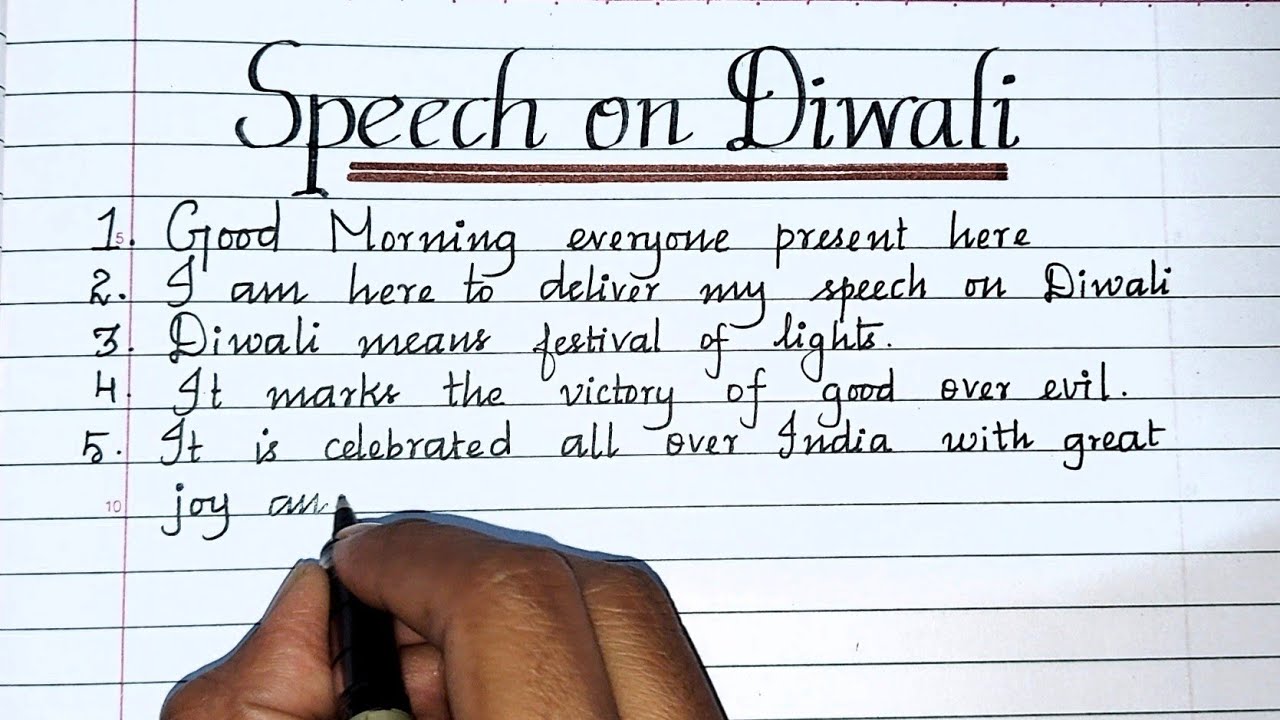 Speech on Diwali
1. Good Morning everyone present here
2. I am here to deliver my speech on Diwali
3. Diwali means festival of lights.
4. It marks the victory of good over evil.
5. It is celebrated all over India with great
joy an
5
10